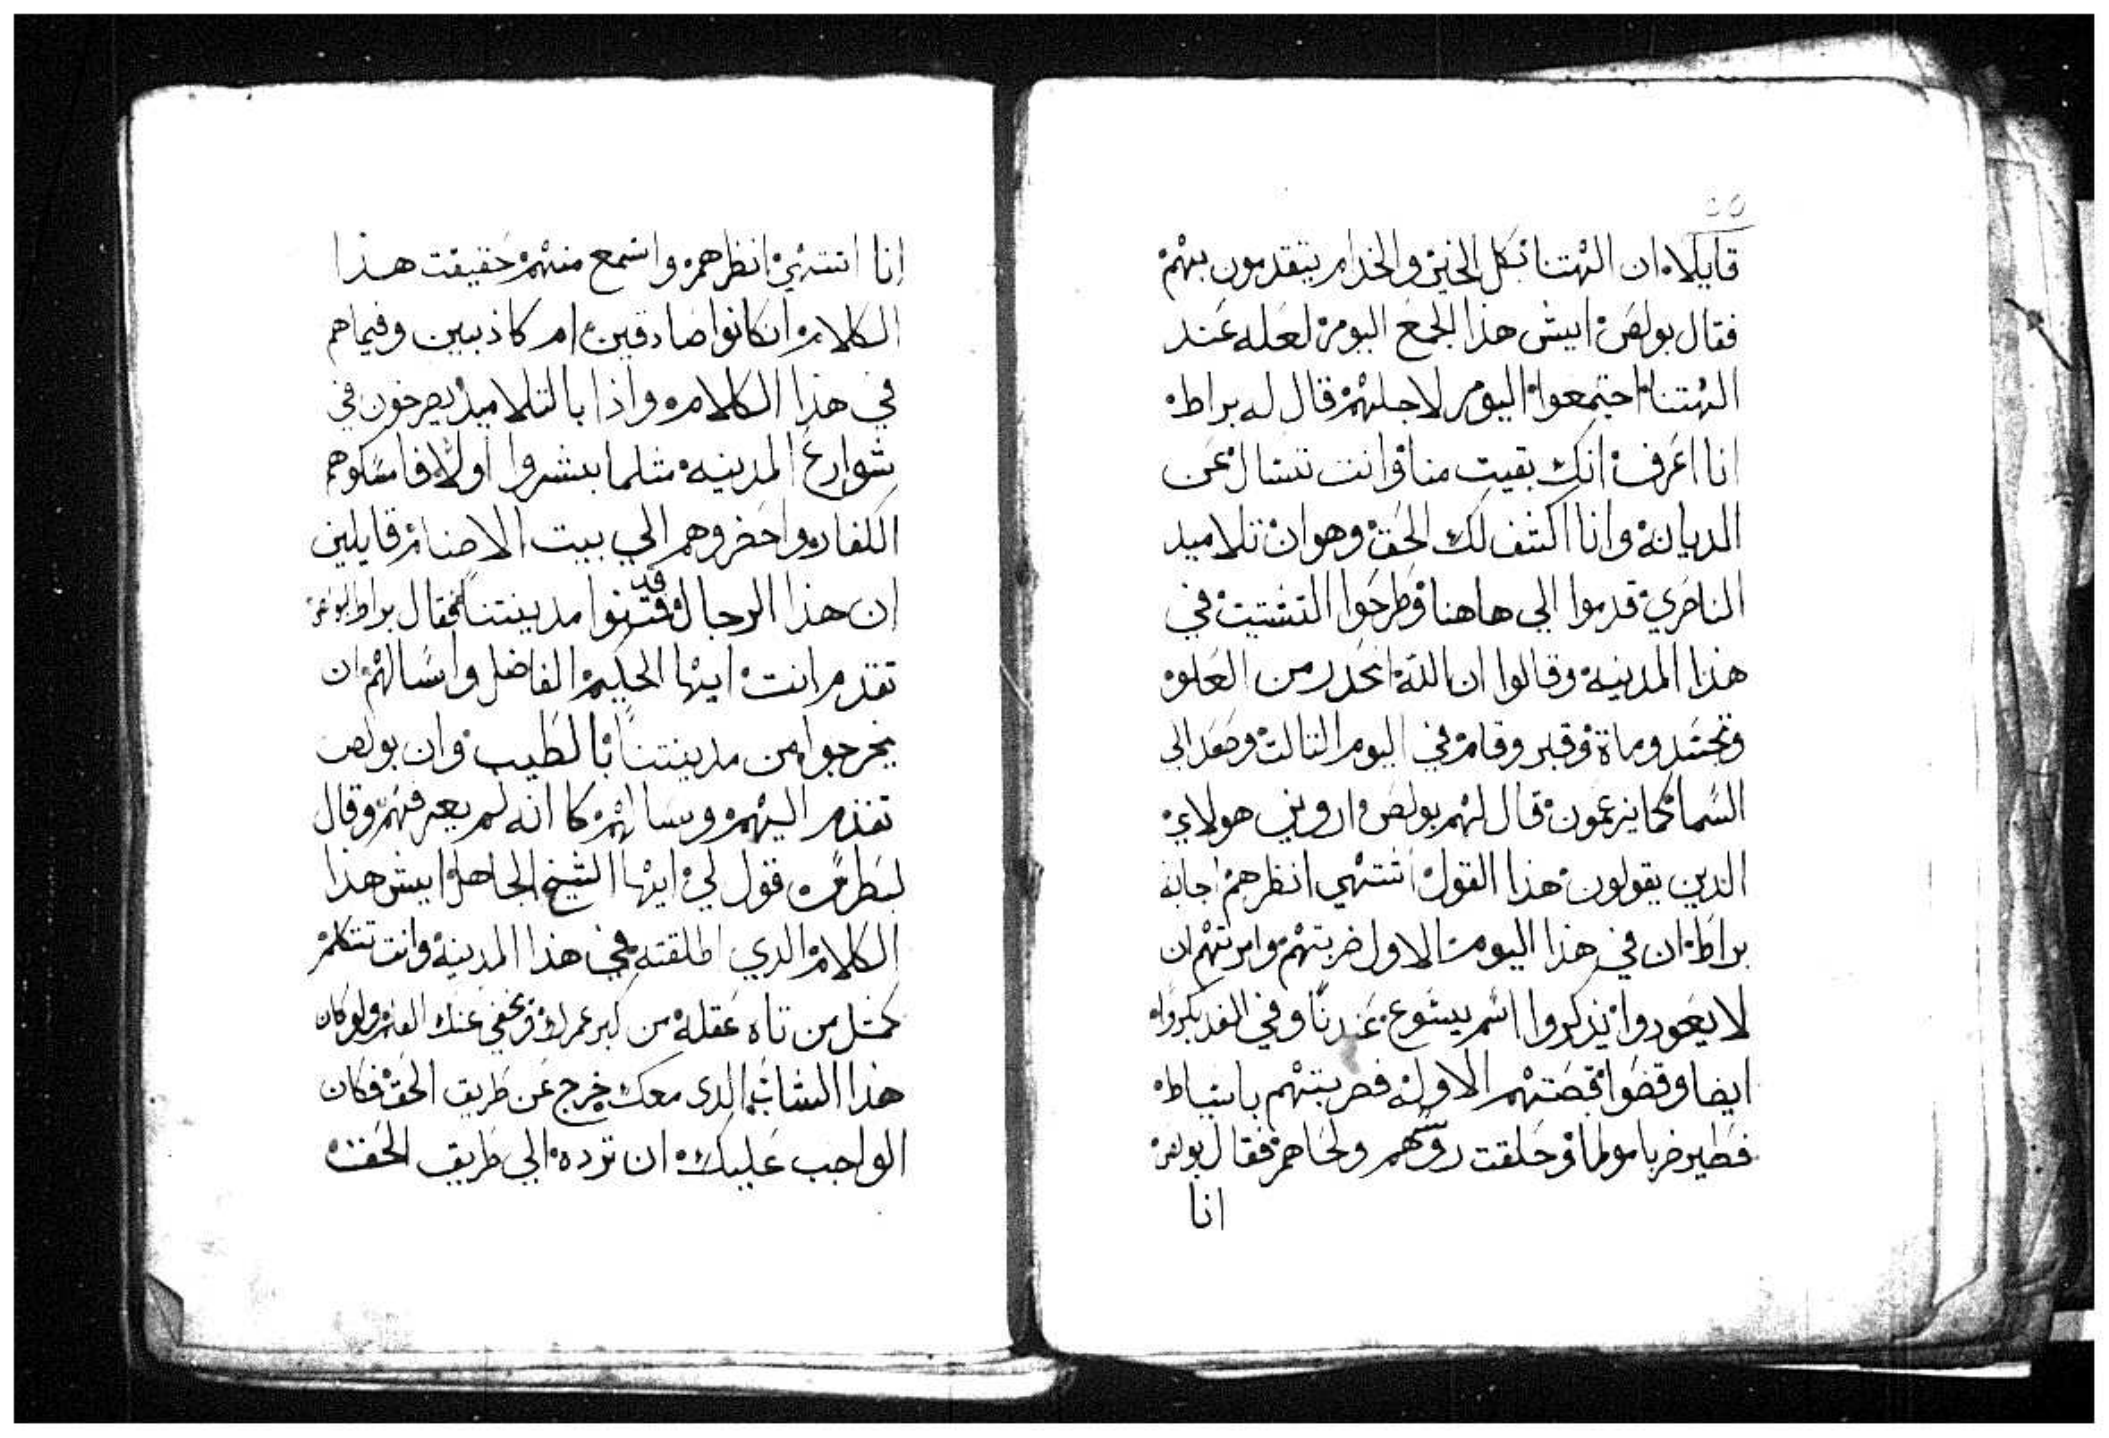 قايلا ان الهتنا بكل الخير والخدام يتقدمون بهم
فقال بولص ايش هذا الجمع اليوم لعله عند
الهتنا اجتمعوا اليوم لاجلهم قال له براط
انا اعرف انك بقيت منا وانت تسال عن
الديانة وانا اكشف لك الحق وهو ان تلاميد
الناصري قدموا الي هاهنا وطرحوا التشتيت في
هذا المدينه وقالوا ان الله انحدر من العلو
وتجسد وماة وقبر وقام في اليوم التالت وصعد الي
السما كما يزعمون قال لهم بولص اروني هولاي
الدين يقولون هذا القول اشتهي انظرهم اجابه
براط ان في هذا اليوم الاول ضربتهم وامرتهم ان
لا يعودوا يذكروا اسم يشوع عندنا وفي الغد بكروا
ايضا وقضوا قصتهم الاوله فضربتهم باسياط
فطير ضربا مولما وحلقت روسهم ولحاهم فقال بولص
انا
انا اشتهي انظرهم واسمع منهم حقيقت هذا
الكلام ان كانوا صادقين ام كاذبين وفيما هم
في هذا الكلام واذا بالتلاميد يصرخون في
شوارع المدينه مثلما بشروا اولا فامسكوهم
الكفار واحضروهم الي بيت الاصنام قايلين
ان هذا الرجال قد فتنوا مدينتنا فقال براط لبولص
تقدم انت ايها الحكيم الفاضل واسالهم ان
يخرجوا من مدينتنا بالطيب وان بولص
تقدم اليهم وسالهم كانه لم يعرفهم وقال
لبطرس قول لي ايها الشيخ الجاهل ايش هذا
الكلام الدي اطلقته في هذا المدينة وانت تتكلم
كمتل من تاه عقله من كبر عمرك ويخفي عنك الفهم ولو كان
هذا الشاب الدي معك خرج عن طريق الحق فكان
الواجب عليك ان ترده الي طريق الحق